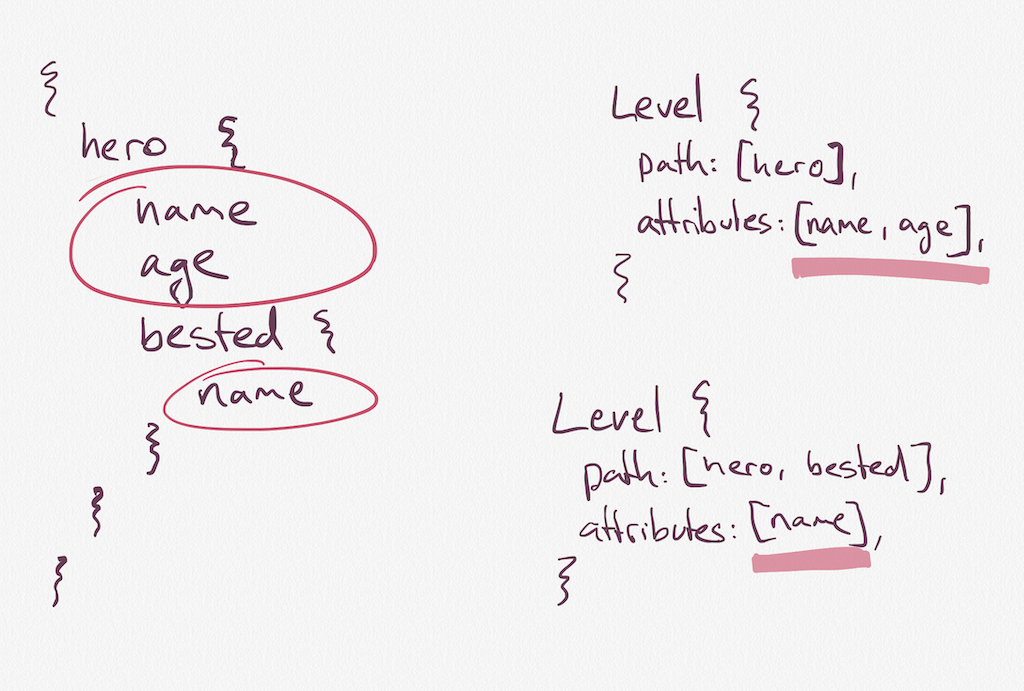 {
hero {
name
age
bested {
name
}
}
}
Level {
path: [hero],
attributes: [name, age],
}
Level {
path: [hero, bested],
attributes: [name],
}